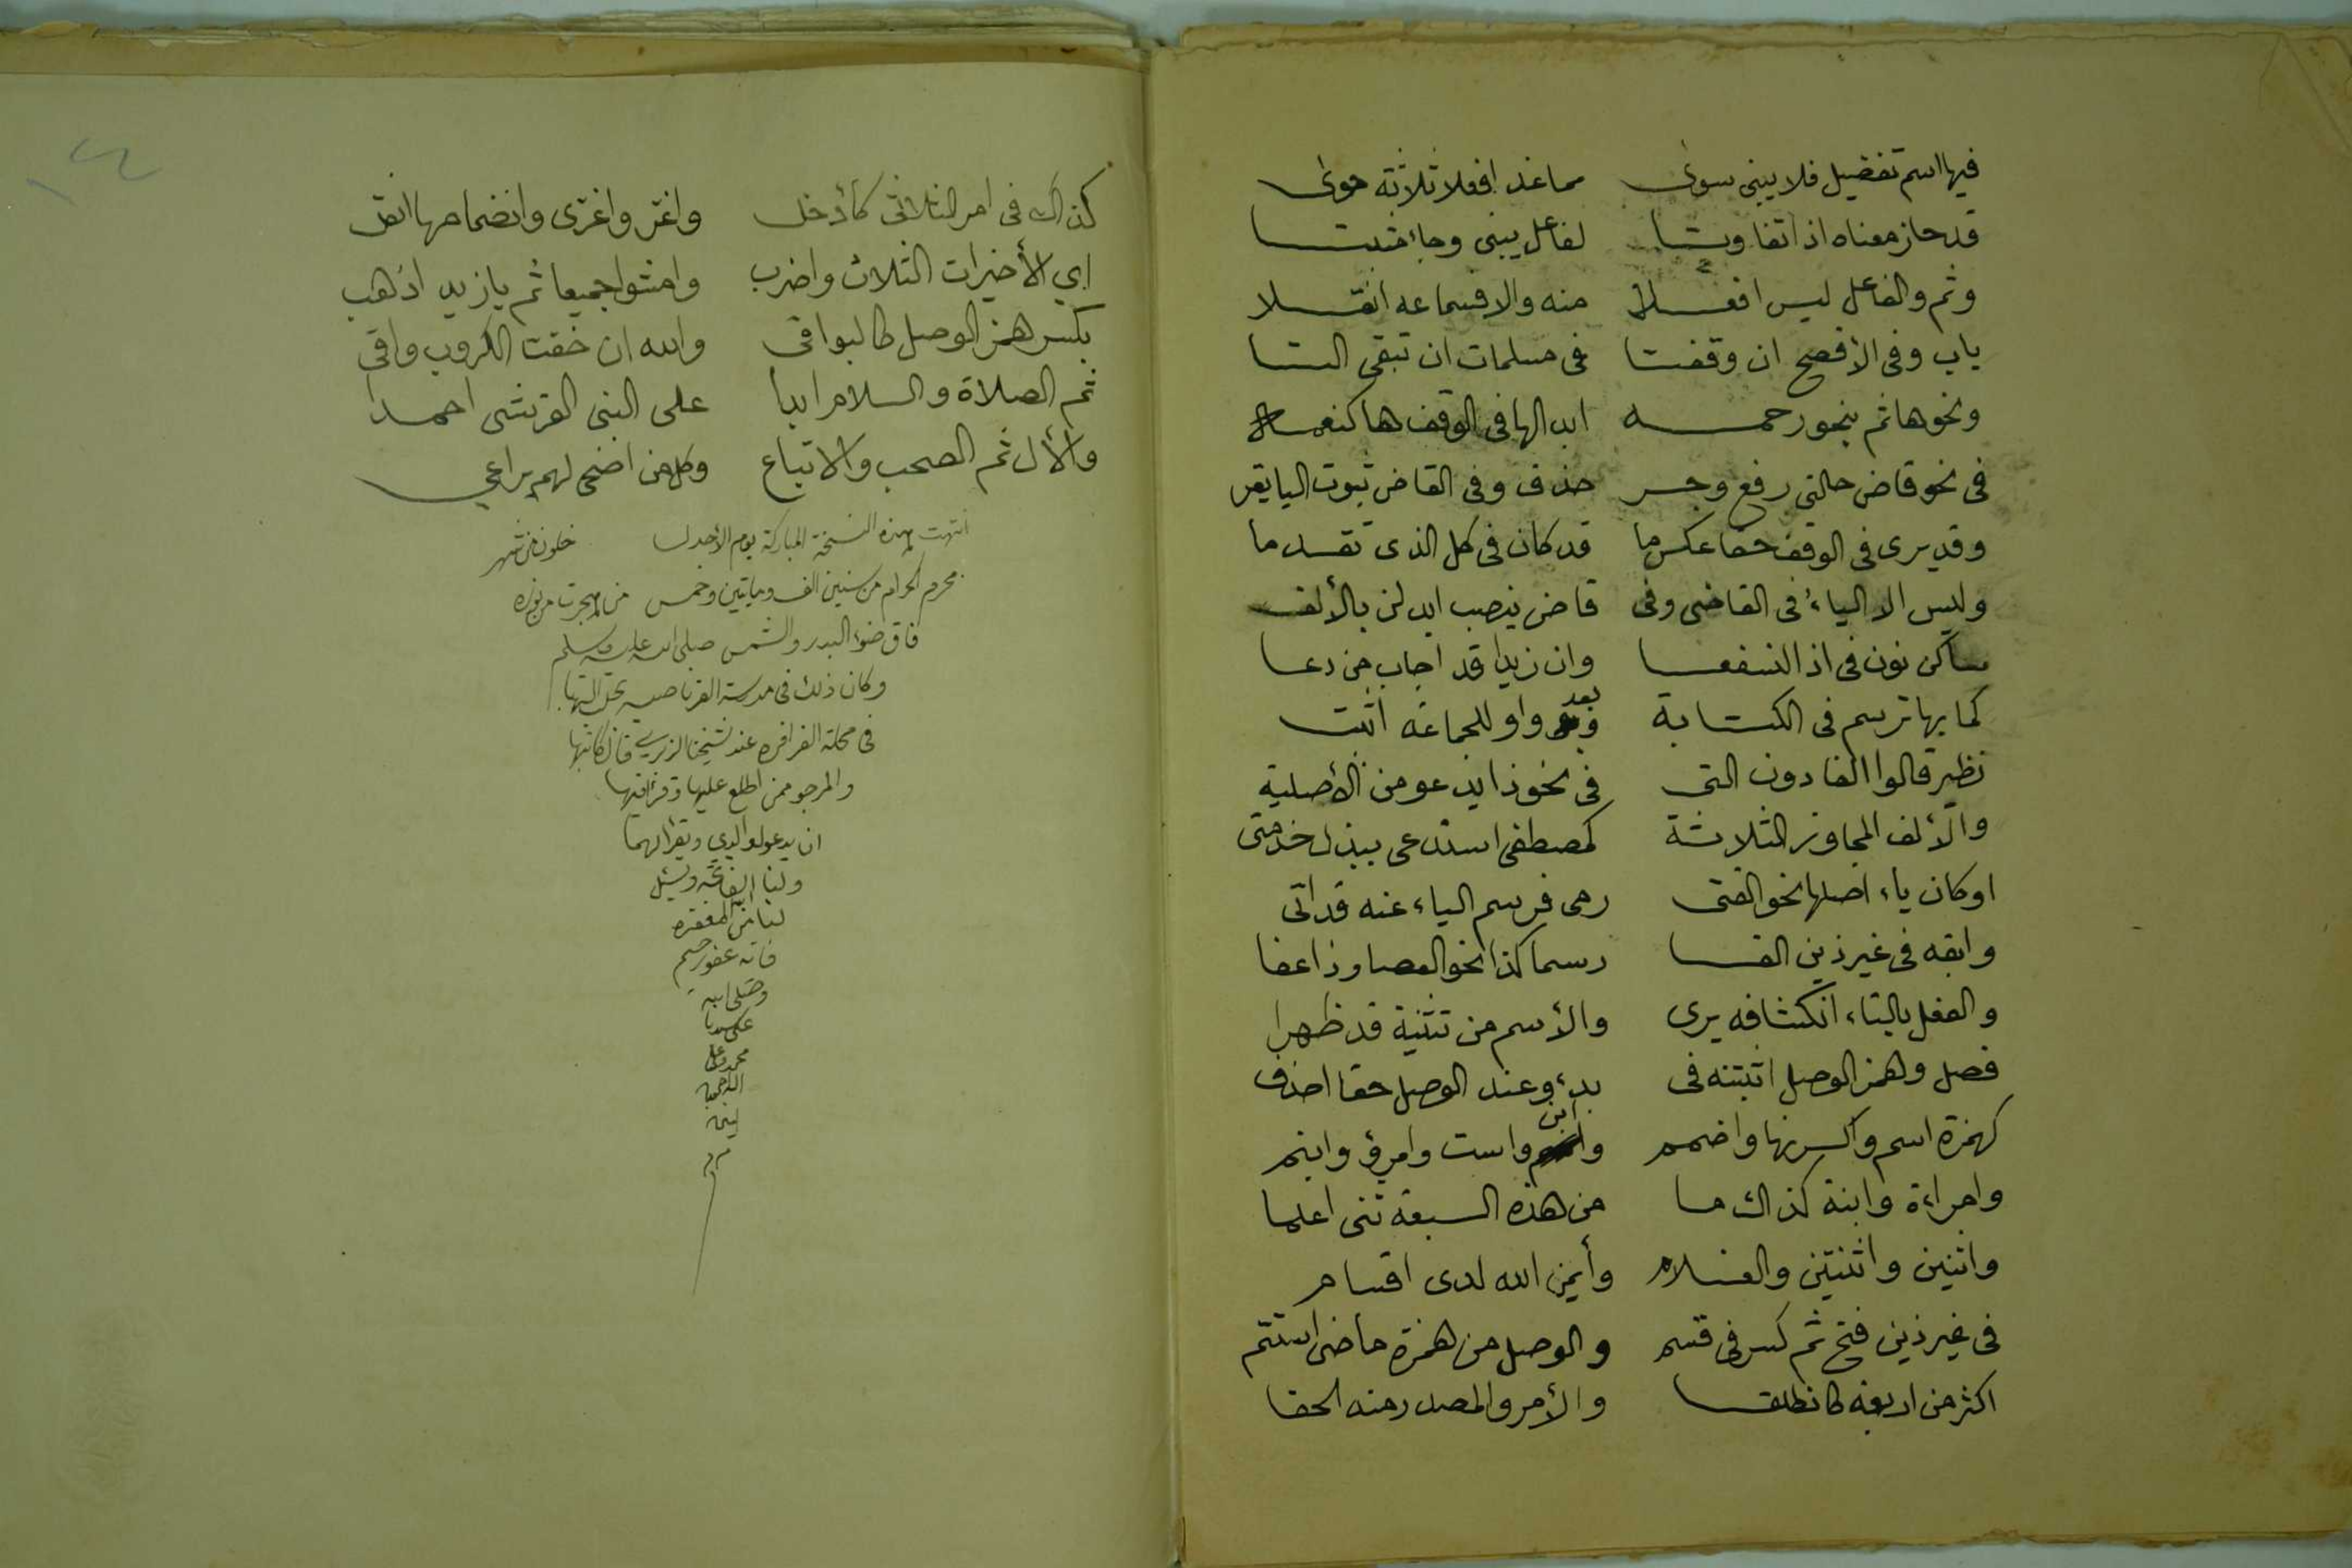 فيها اسم تفضيل فلا يبنى سوى مما غدا فعلا ثلاثة حوى
قد حاز معناه اذا تفاوتا لفاعل يبنى وجاء مثبتا
وثم والفاعل ليس افعلا منه والا فسماعه انقلا
باب وفى الأفصح ان وقفتا فى مسلمات ان تبقى التا
ونحوها ثم بنحو رحمه ابدالها فى الوقف ها كنعمه
فى نحو قاض حالتى رفع وجر حذف وفى القاض ثبوت اليا يقر
وقد يرى فى الوقف حقا عكس ما قد كان فى كل الذى تقدما
وليس الا الياء فى القاضى وفى قاض بنصب ابدلن بالألف
ساكن نون فى اذا لنسفعا وان زيدا قد اجاب من دعا
كما بها ترسم فى الكتابة وبعد واو للجماعة اثبت
نظير قالوا الغادون التى فى نحو ذا يدعو من الأصلية
والألف المجاوز الثلاثة كمصطفى استدعى ببذل خدمتى
او كان ياء اصلها نحو الفتى رمى فرسم الياء عنه قد اتى
وابقه فى غير ذين الفا رسما كذا نحو العصا وذا عفا
والفعل بالتاء انكشافه يرى والأسم من تثنية قد ظهرا
فصل وهمز الوصل اثبتنه فى بدء وعند الوصل حقا احذف
كهمزة اسم واكسرنها واضمم وابن واست وامرؤ وابنم
وامراءة وابنة كذاك ما من هذه السبعة ثنى اعلما
واثنين واثنتين والغلام وأيمن الله لدى اقسام
فى غير ذين فتح ثم كسر فى قسم والوصل من همزة ماضى استتم
اكثر من اربعة كانطلقا والأمر والمصدر منه الحقا
كذاك فى امر الثلاثى كادخل واغز واغزى وانضمامها انقل
اي الأخيرات الثلاث واضرب وامشوا جميعا ثم يا زيد اذهب
بكسر همز الوصل كالبواقى والله ان خفت الكروب واقى
ثم الصلاة والسلام ابدا على النبى القرشى احمدا
والأل ثم الصحب والاتباع وكل من اضحى لهم يراعي
انتهت هذه النسخة المباركة يوم الأحد خلون من شهر
محرم الحرام من سنين الف وماتين وخمس من هجرت من نوره
فاق ضوء البدر والشمس صلى الله عليه وسلم
وكان ذلك فى مدرسة القرناصيه
فى محلة الفرافره عند شيخنا قال كاتبها
والمرجو ممن اطلع عليها وقرا فيها
ان يدعو لوالدي ويقرا لهما
ولنا الفاتحه ويسئل
لنا من الله المغفره
فانه غفور رحيم
وصلى الله
على سيدنا
محمد وعلى
اله